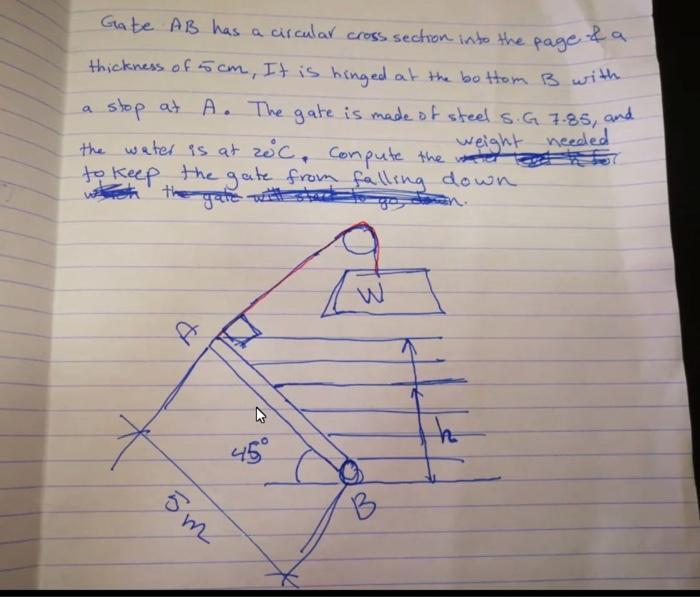 Gate AB has a circular cross section into the page & a
thickness of 5 cm, It is hinged at the bottom B with
a stop at A. The gate is made of steel S.G 7.85, and
the water is at 20°C. Conpute the weight needed
to keep the gate from falling down
the gate will start to go down.
W
A
h
45°
B
5m